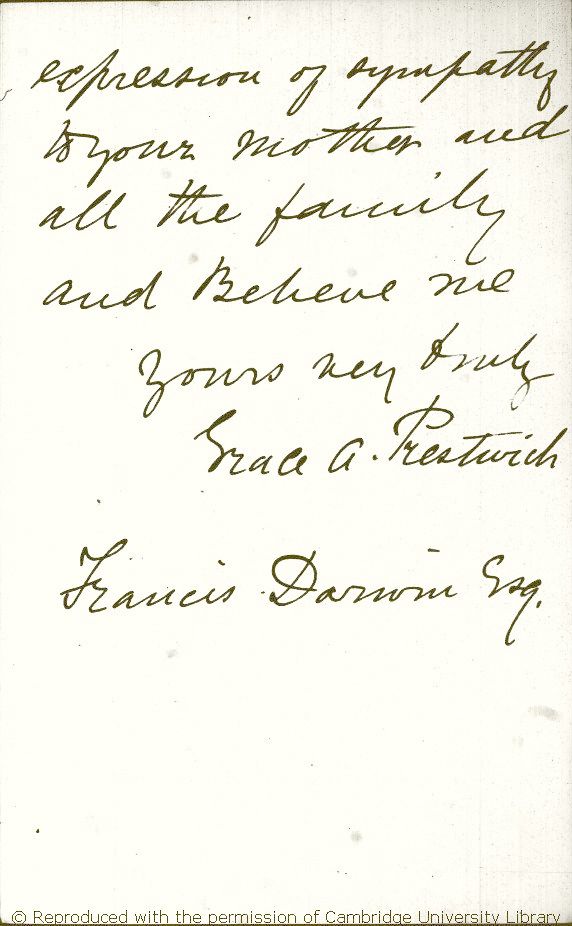 expression of sympathy
to your mother and
all the family
and Believe me
yours very truly
Grace A. Prestwich
Francis Darwin Esq.
© Reproduced with the permission of Cambridge University Library